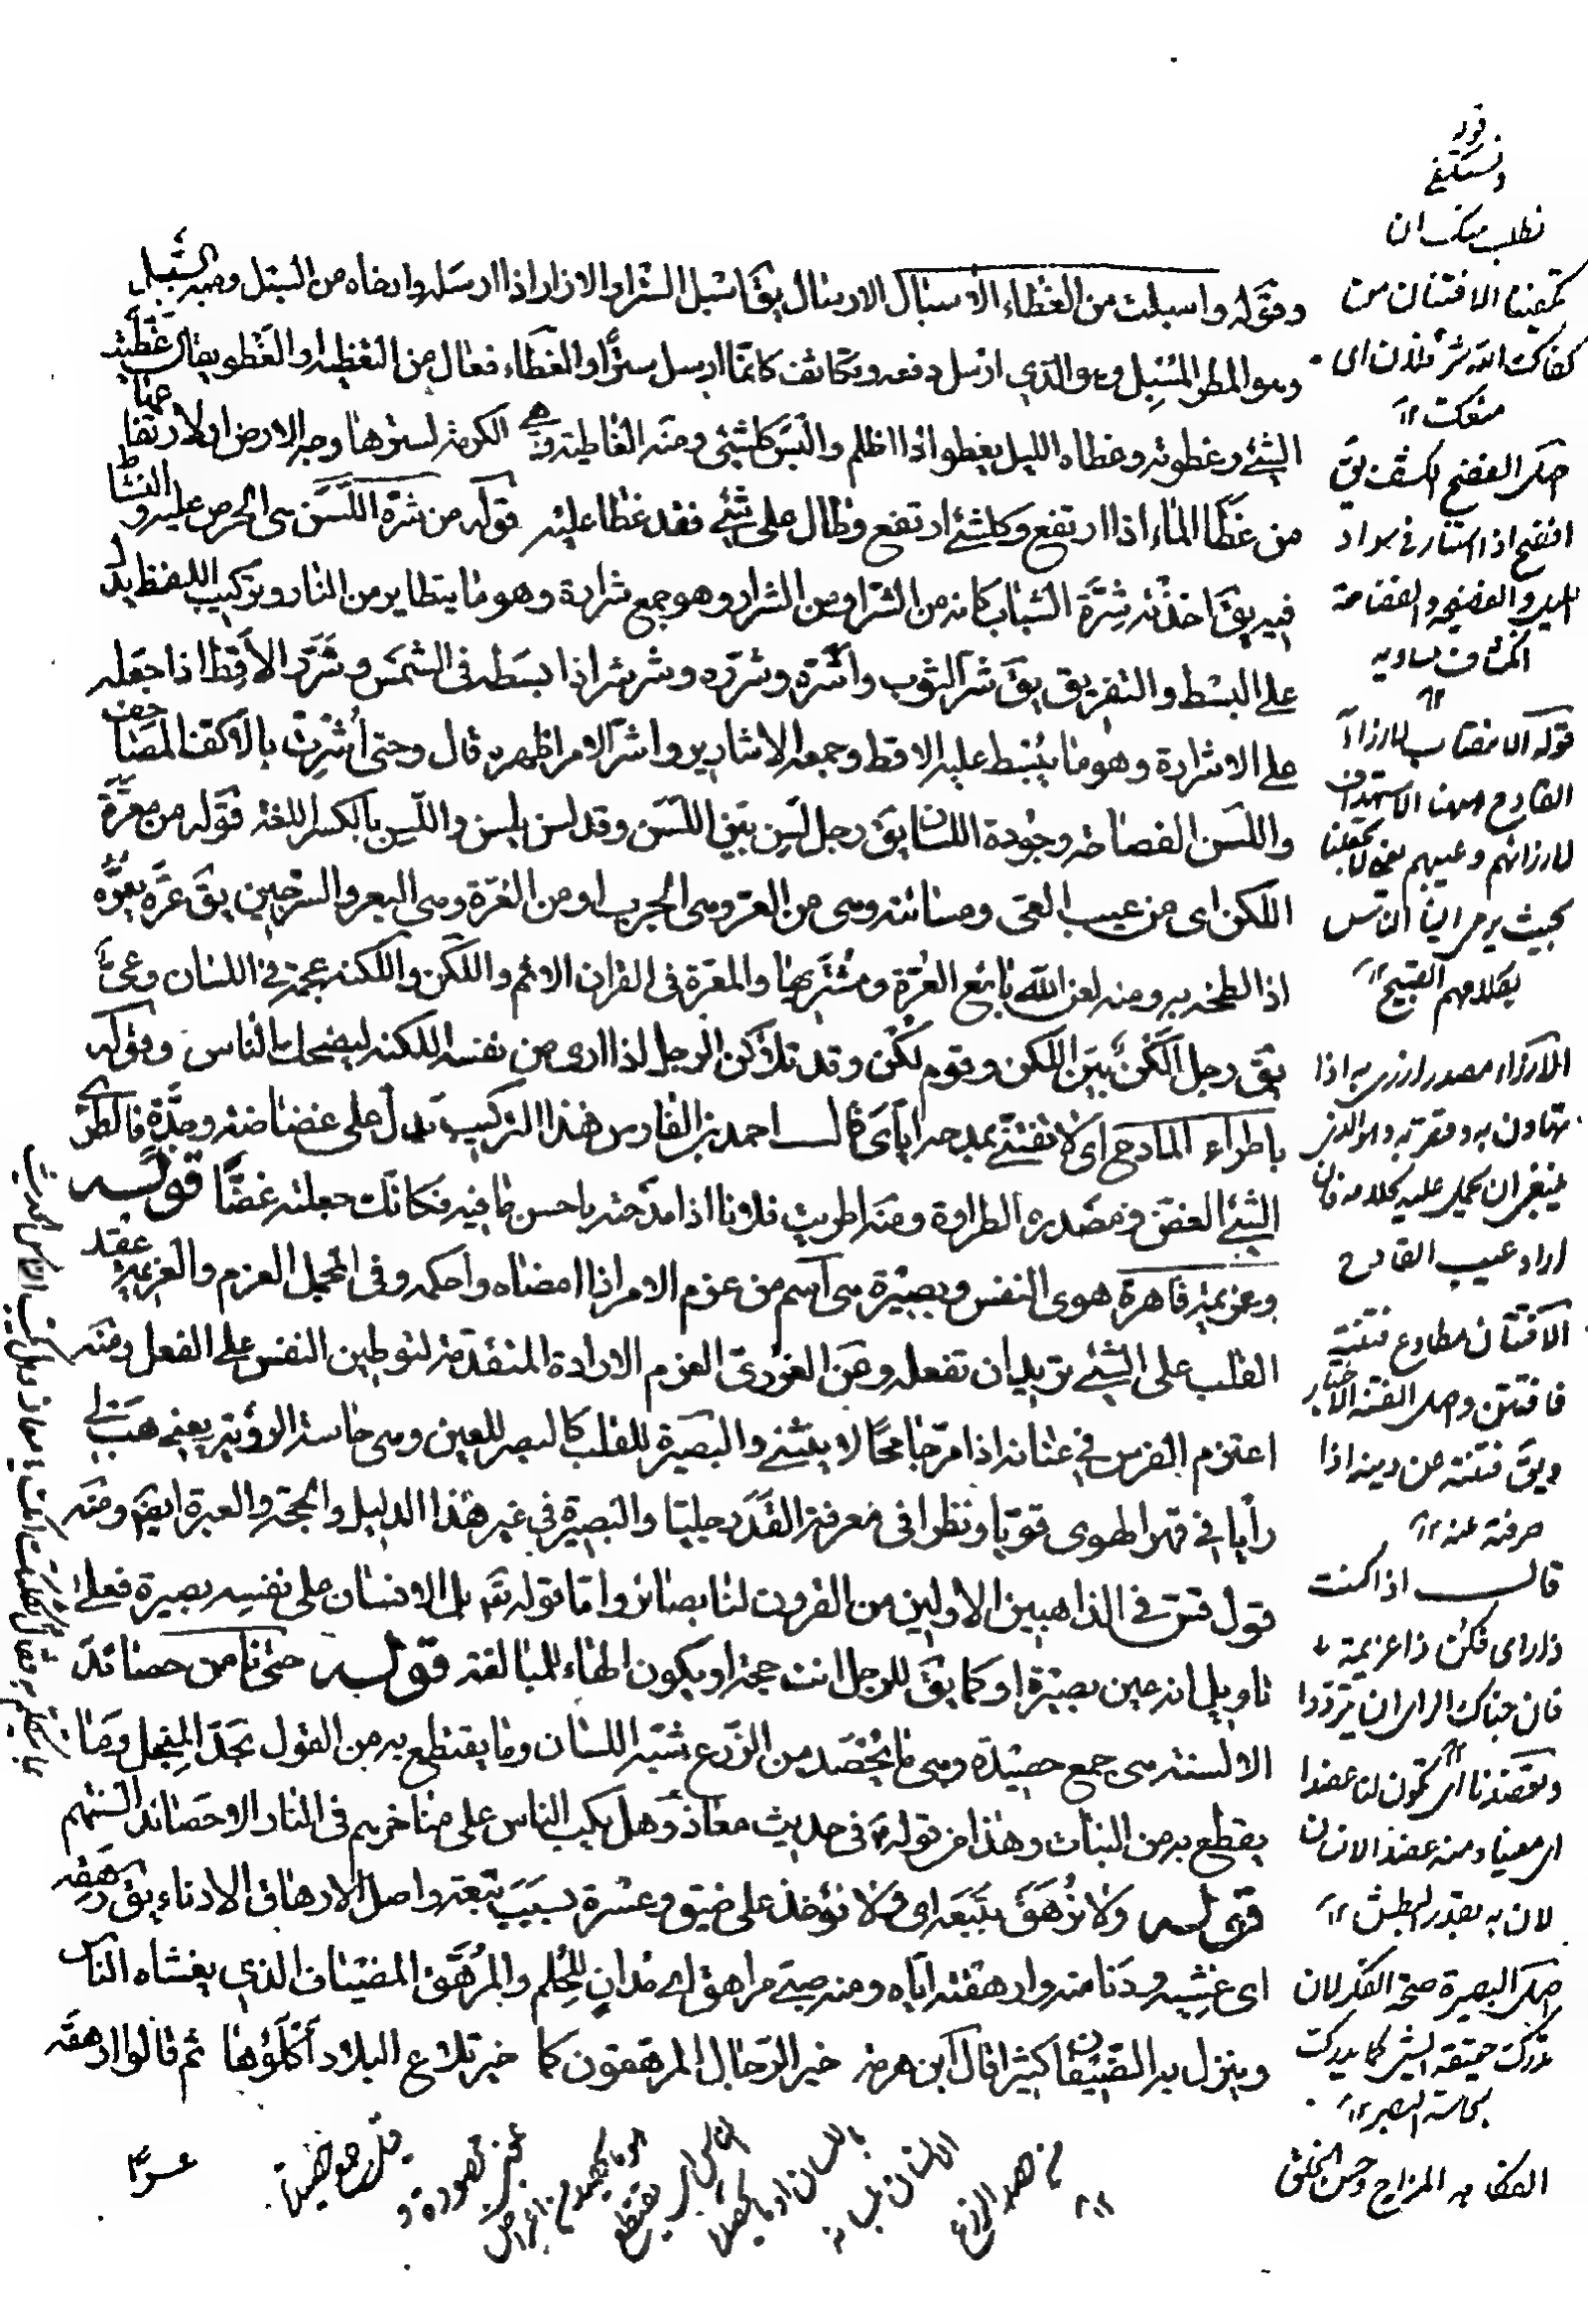 وقوله واسبلت من الغطاء الاسبال الارسال يقَ اسبل الستر والازار اذا ارسله وارخاه من السبل ومنه السَبَل
وهو المطر المُسبِل وهو الذي ارسل دفعه وتكاثف كانما ارسل سترًا والغطاء فعال من التغطيه والغطو يقال غَطَّيت
الشئ وغطوته وغطاه الليل يغطو اذا اظلم والبس كلشئ ومنه الغاطية وهي الكرمة لسترها وجه الارض او لارتفاعها
من غطا الماء اذا ارتفع وكلشئ ارتفع وطال على شئ فقد غطا عليه قوله من شرّة اللَسَن هى الحرص عليه والنشاط
فيه يقَ اخذته شِرَّة الشباب كانه من الشر او من الشرار وهو جمع شرارة وهو ما يتطاير من النار وتركيب اللفظ يدل
على البسط والتفريق يقَ شرّ الثوب واشَرّه وشرّره وشرشر اذا بسطه فى الشمس وشَرَّر الاقِط اذا جعله
على الاشرارة وهو ما يبسط عليه الاقط وجمعه الاشارير واشرّ الامر اظهره قال وحتى اُشِرّت بالاكفّ المصاحف
واللَسَن الفصاحة وجودة اللسان يقَ رجل لَسِن بيّن اللَسَن وقد لسن يلسن واللِسن بالكسر اللغة قوله من معرّة
اللكن اى من عيب العىّ ومساءته وهى من العرّ وهى الجرب او من العُرّة وهى البعر والسرجين يقَ عَرَّه يعرّه
اذا لطخه به ومنه لعن الله بائع العُرّة ومشتريها والمعرّة فى القران الاثم واللكن واللكنه عجمة فى اللسان وعىّ
يقَ رجل اَلكَن بيّن اللكن وقوم لُكن وقد تلاكن الرجل اذا ارى من نفسه اللكنه ليضحك الناس وقوله
باطراء المادح اى لا تفتنّا بمدحه ايانا قال احمد بن الفارس هذا التركيب تدل على غضاضة وجدّة فالطرى
الشئ الغضّ ومصدره الطراوة ومنه اطريت فلانا اذا مدحته باحسن ما فيه فكانك جعلته غضًّا قوله
وعزيمة قاهرة هوى النفس وبصيرة هى اسم من عزم الامر اذا امضاه واحكمه وفى المجمل العزم والعزيمة عقد
القلب على الشئ تريد ان تفعله وعن الغورى العزم الارادة المتقدمة لتوطين النفس على الفعل ومنه
اعتزم الفرس فى عنانه اذا مرّ جامحًا لا ينثنى والبصيرة للقلب كالبصر للعين وهى حاسة الرؤية يعنى هب لى
رأيا فى قهر الهوى قويا ونظرا فى معرفة القدر جليّا والبصيرة فى غير هذا الدليل والحجة والعبرة ايضا ومنه
قول قسّ فى الذاهبين الاولين من القرون لنا بصائر واما قوله تع بل الانسان على نفسه بصيرة فعلى
تاويل انه عين بصيرة او كما يقَ للرجل انت حجة او يكون الهاء للمبالغة قوله حتى نامن حصائد
الالسنة هى جمع حصيدة وهى ما يُحصَد من الزرع شبّه اللسان وما يقتطع به من القول بحَدّ المنجل وما
يقطع به من النبات وهذا من قوله فى حديث معاذ وهل يكب الناس على مناخرهم فى النار الا حصائد السنتهم
قوله ولا نُرهَق بتَبِعَة اى لا نؤخذ على ضيق وعسرة بسبب تبعة واصل الارهاق الادناء يقَ رَهِقه
اى غشِيه ودنا منه وارهقته اياه ومنه صبىّ مراهق اى مُدانٍ للحُلم والمُرهَّق المضياف الذى يغشاه الناس
وينزل به الضيفان كثيرا قال ابن هرمة خير الرجال المرهقون كما خير تلاع البلاد اكلؤها ثم قالوا ارهقه
قوله
ونستكفى
نطلب منك ان
تكفينا الافتنان من
كفاك الله شر فلان اى
منعك ١٢
اصل الفضح الكشف يقَ
افتضح اذا استنار فى سواد
الليل والفضيحه والفضاحة
انكشاف مساويه
١٢
قوله الانتصاب لازراء
القادح اصل الاستهداف
لازرائهم وعيبهم يعنى لا تجعلنا
بحيث يرمى الينا الناس
بكلامهم القبيح ١٢
الازراء مصدر ازرى به اذا
تهاون به وقصر به والذى
ينبغى ان يحمل عليه كلامه فان
اراد عيب القادح
الافتتان مطاوع فتنته
فافتتن واصل الفتنه الاختبار
ويقَ فتنته عن دينه اذا
صرفته عنه ١٢
قال اذا كنت
ذا راى فكن ذا عزيمة
فان فساد الراى ان يترددا
وتعضدنا اى تكون لنا عضدا
اى معينا ومنه عضد الانسان
لان به يقدر البطش ١٢
اصل البصيرة صحة الفكر لان
يدرك حقيقة الشئ كما يدرك
بحاسة البصر ١٢
الفكاهه المزاح وحسن الخلق